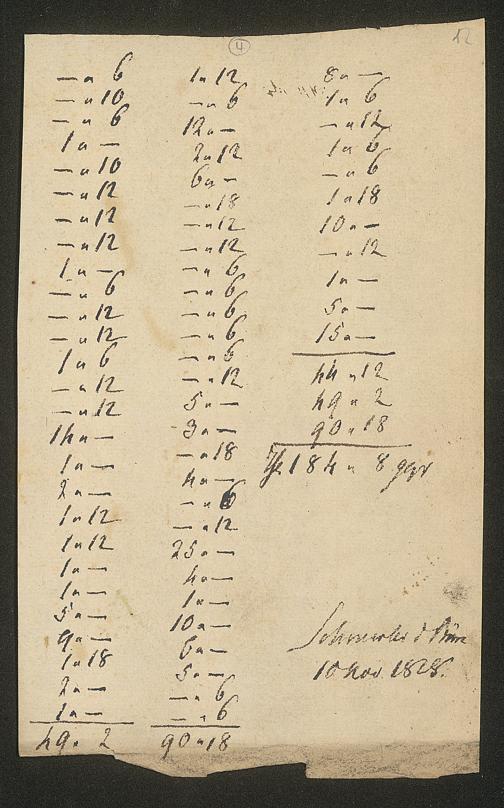 4
12
— " 6
— " 10
— " 6
1 " —
— " 10
— " 12
— " 12
— " 12
1 " —
— " 6
— " 12
— " 12
1 " 6
— " 12
— " 12
14 " —
1 " —
2 " —
1 " 12
1 " 12
1 " —
1 " —
5 " —
9 " —
1 " 18
2 " —
1 " —
49 " 2
1 " 12
— " 6
12 " —
2 " 12
6 " —
— " 18
— " 12
— " 12
— " 6
— " 6
— " 6
— " 6
— " 12
5 " —
3 " —
— " 18
4 " —
— " 6
— " 12
25 " —
4 " —
1 " —
10 " —
6 " —
5 " —
— " 6
— " 6
90 " 18
8 " —
1 " 6
— " 12
1 " 6
— " 6
1 " 18
10 " —
— " 12
1 " —
5 " —
15 " —
44 " 12
49 " 2
90 " 18
184 " 8 ggr
10 Nov. 1828.